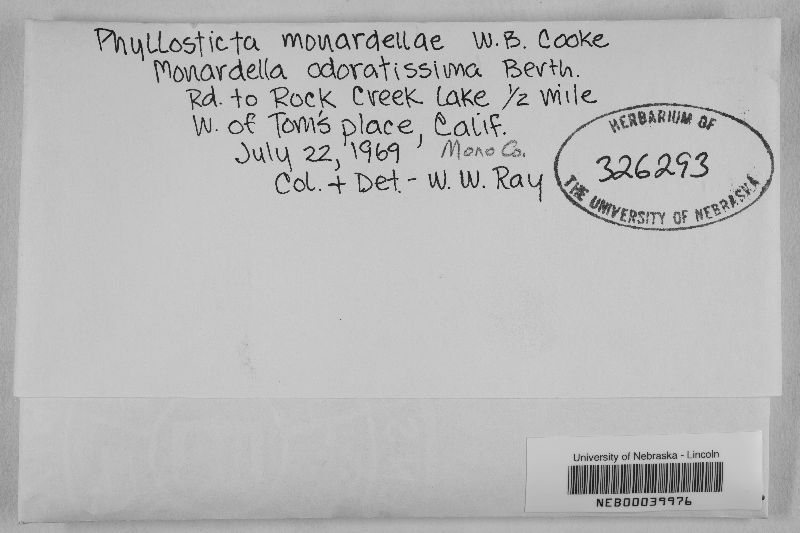 Phyllosticta monardellae W.B. Cooke
Monardella odoratissima Benth.
Rd. to Rock Creek Lake 1/2 mile
W. of Tom's place, Calif.
July 22, 1969 Mono Co.
Col. + Det. - W. W. Ray
HERBARIUM OF
326293
THE UNIVERSITY OF NEBRASKA
University of Nebraska - Lincoln
NEB00039976